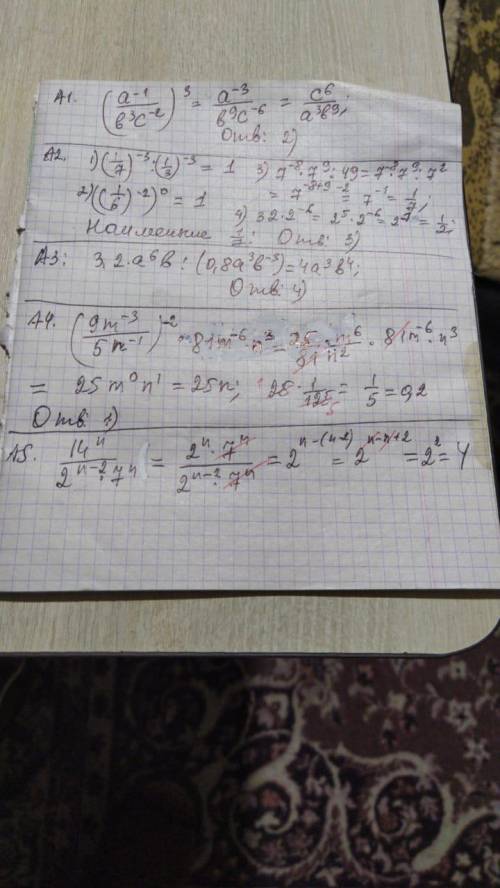 А1. (a⁻¹/в³c⁻²)³ = a⁻³/в⁹c⁻⁶ = c⁶/a³в⁹;
Отв: 2)
А2. 1) (1/7)⁻³ : (1/7)⁻³ = 1 3) 7⁻⁸·7⁹ : 49 = 7⁻⁸·7⁹ : 7²
2) ((1/6)⁻²)⁰ = 1 = 7⁻⁸⁺⁹⁻² = 7⁻¹ = 1/7;
4) 32·2⁻⁶ = 2⁵·2⁻⁶ = 2⁻¹ = 1/2;
Наименьшие 1/7: Отв: 3)
А3: 3,2·a⁶в : (0,8a³в⁻³) = 4a³в⁴;
Отв: 4)
А4. (9m⁻³/5n⁻¹)⁻² · 81m⁻⁶·n³ = 25/81 · m⁶/n² · 81m⁻⁶·n³
= 25m⁰n¹ = 25n; 25·1/125 = 1/5 = 0,2
Отв: 1)
А5. 14ⁿ/2ⁿ⁻²·7ⁿ = 2ⁿ·7ⁿ/2ⁿ⁻²·7ⁿ = 2ⁿ⁻⁽ⁿ⁻²⁾ = 2ⁿ⁻ⁿ⁺² = 2² = 4